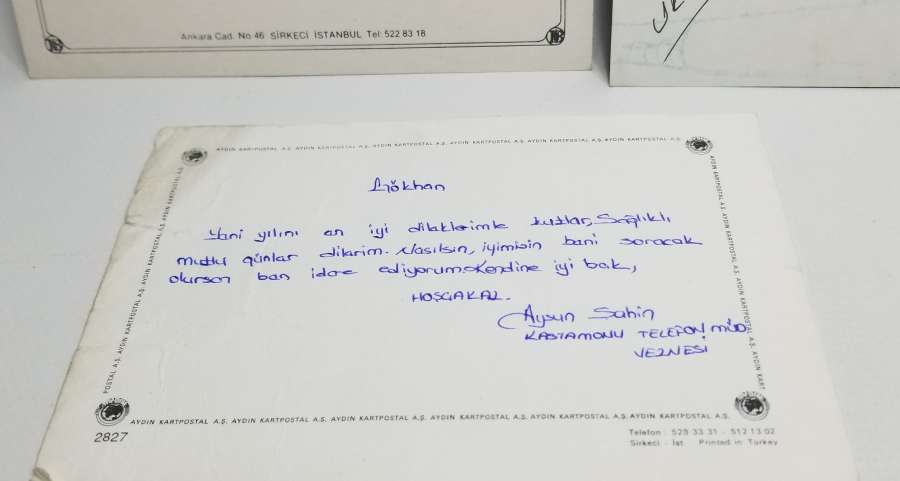 Ankara Cad. No 46 SİRKECİ İSTANBUL Tel: 522 83 18
AYDIN KARTPOSTAL A.Ş. AYDIN KARTPOSTAL A.Ş. AYDIN KARTPOSTAL A.Ş. AYDIN KARTPOSTAL A.Ş. AYDIN KARTPOSTAL A.Ş.
Gökhan
Yani yılını an iyi dilaklarimla kutlar, Sağlıklı
mutlu günlar dilarim. Nasılsın, iyimisin bani soracak
olursan ban idare ediyorum. Kendine iyi bak,
HOŞÇAKAL.
Aysun Sahin
KASTAMONU TELEFON MÜD.
VEZNESİ
AYDIN KARTPOSTAL A.Ş. AYDIN KARTPOSTAL A.Ş. AYDIN KARTPOSTAL A.Ş. AYDIN KARTPOSTAL A.Ş. AYDIN KARTPOSTAL A.Ş. AYDIN KARTPOSTAL A.Ş.
2827
Telefon : 528 33 31 - 512 13 02
Sirkeci - İst. Printed in Turkey